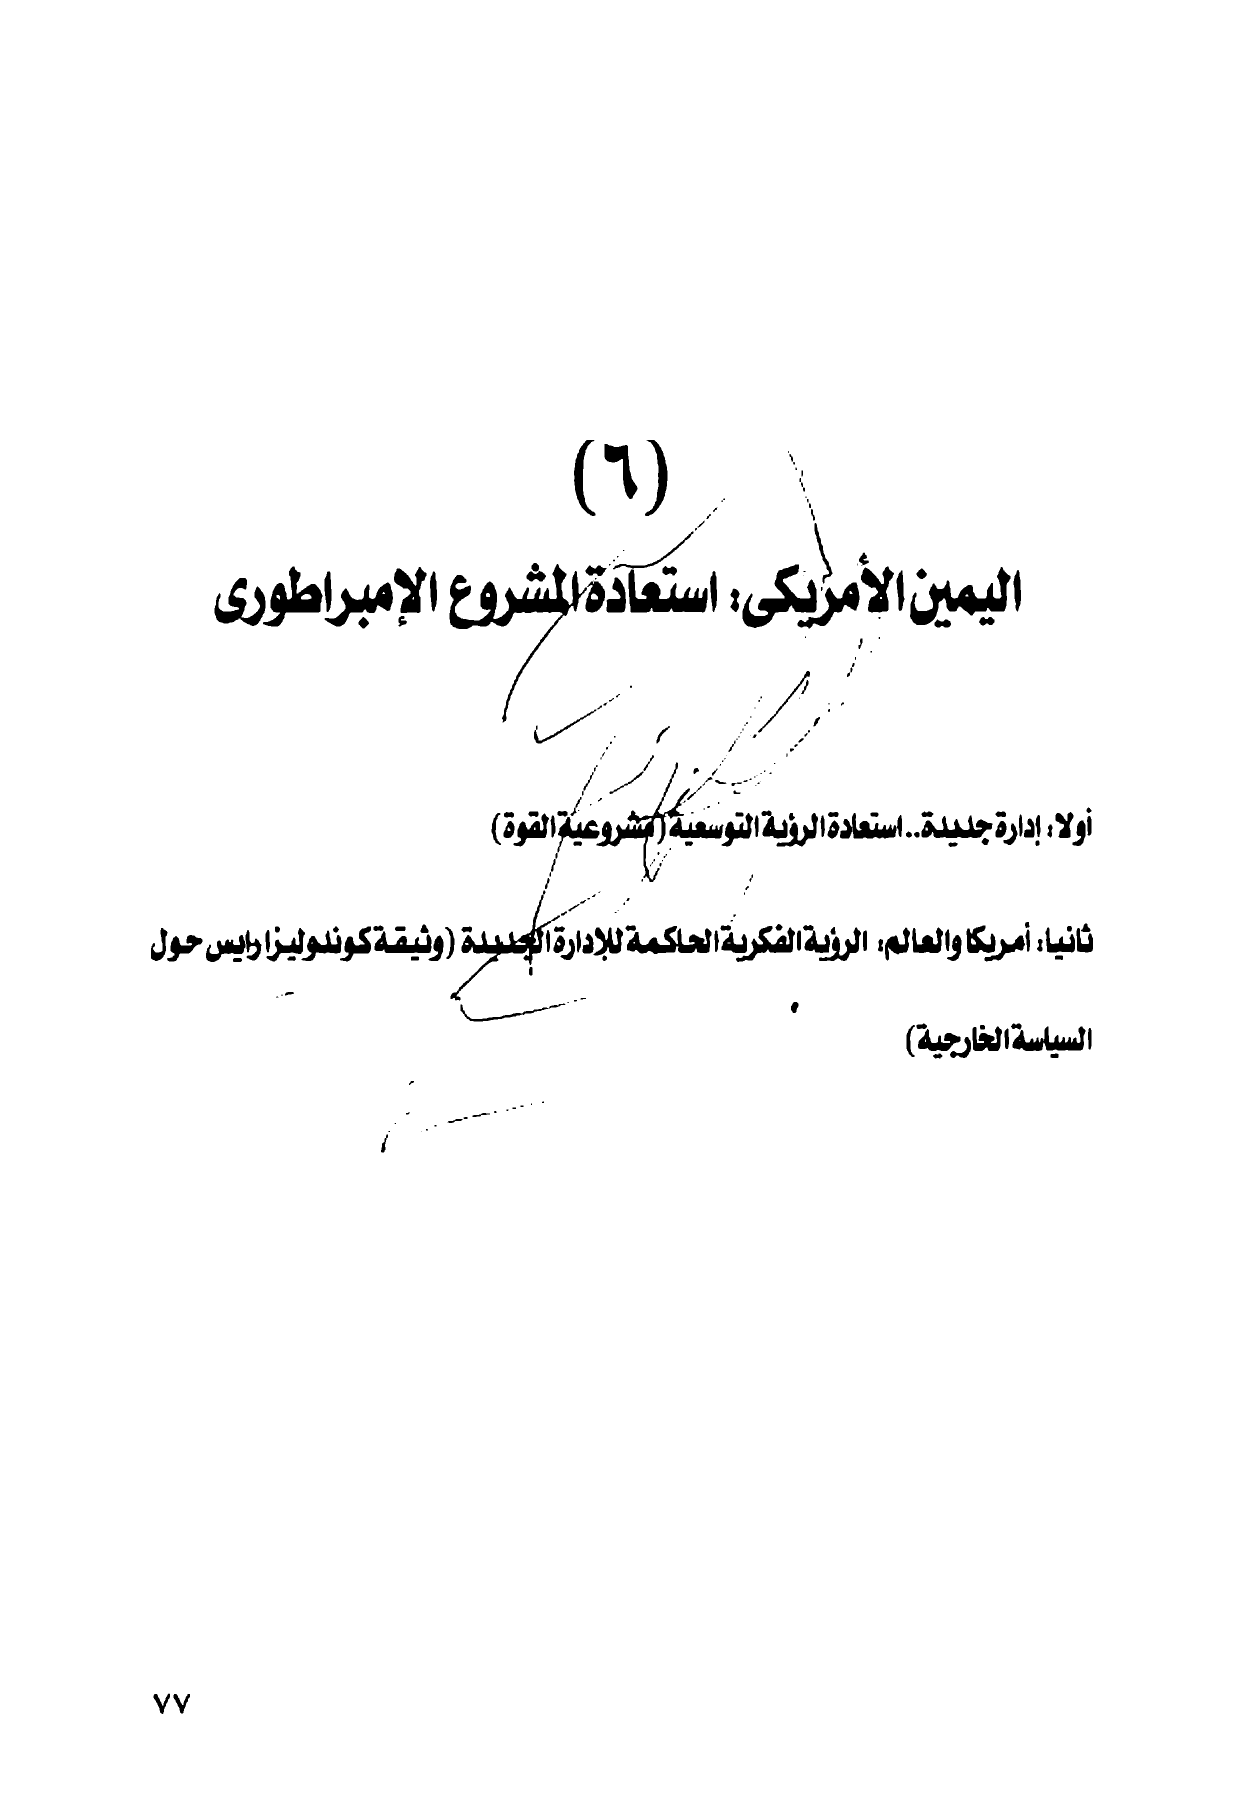 (٦)
اليمين الأمريكى: استعادة المشروع الإمبراطورى
أولا: إدارة جديدة.. استعادة الرؤية التوسعية (مشروعية القوة)
ثانيا: أمريكا والعالم: الرؤية الفكرية الحاكمة للإدارة الجديدة (وثيقة كوندوليزا رايس حول
السياسة الخارجية)
٧٧